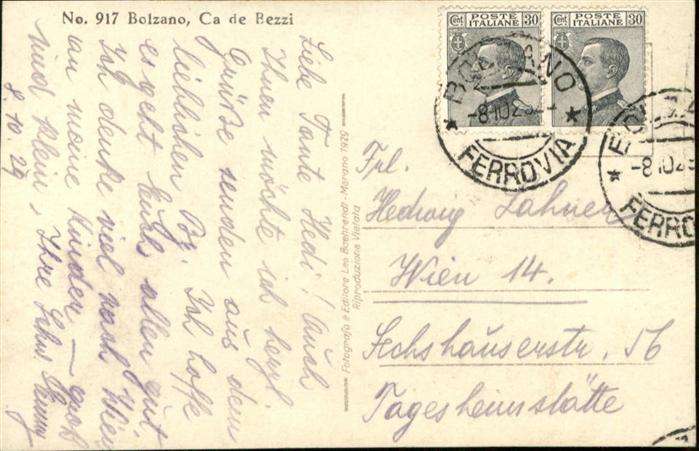 No. 917 Bolzano, Ca de Bezzi
8.10 29
Liebe Tante Hedi! Auch
Ihnen möchte ich herzl.
Grüße senden aus dem
lieblichen Bz. Ich hoffe
es geht Euch allen gut
Ich denke viel nach Wien
an meine Kinder — groß
und klein, Ihre
Fotografia e Editore Leo Baehrendt - Merano 1929
Riproduzione Vietata
POSTE ITALIANE
Cent. 30
POSTE ITALIANE
Cent. 30
BOLZANO
-8 10 29
* FERROVIA *
-8 10 29
* FERROVIA
Frl.
Hedwig Lahner
Wien 14.
Sechshauserstr. 56
Tagesheimstätte